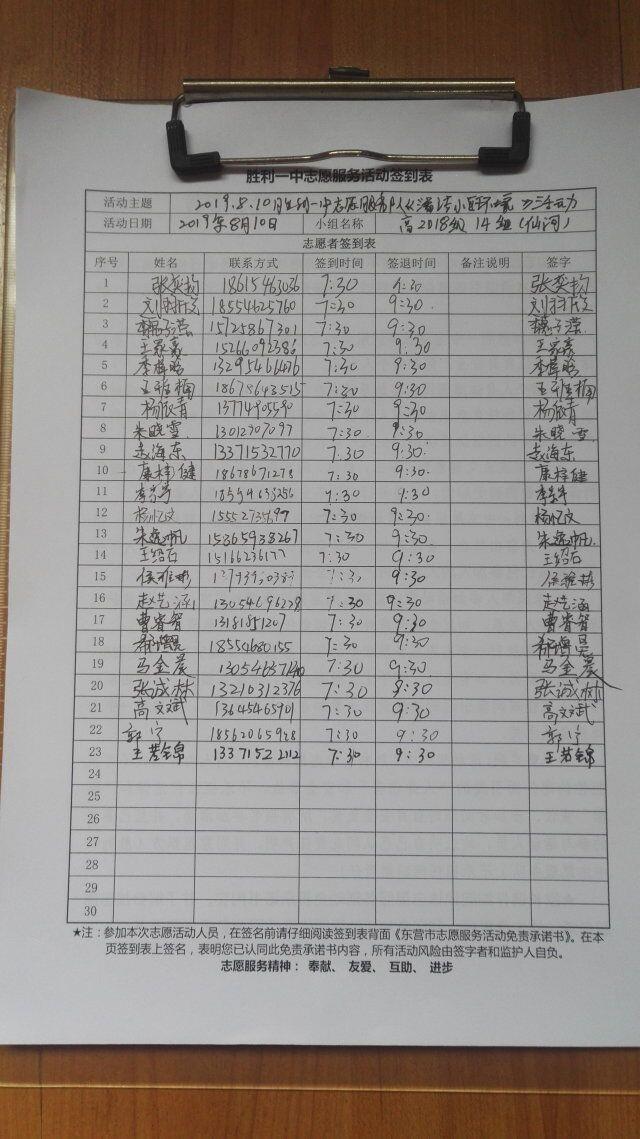 胜利一中志愿服务活动签到表
活动主题 2019.8.10胜利一中志愿服务队《清洁小区环境》活动
活动日期 2019年8月10日 小组名称 高2018级14组(仙河)
志愿者签到表
序号 姓名 联系方式 签到时间 签退时间 备注说明 签字
1 18615463036 7:30 9:30
2 18554625760 7:30 9:30
3 15725867301 7:30 9:30
4 王家豪 15266092386 7:30 9:30 王家豪
5 13295461476 7:30 9:30
6 18678643515 7:30 9:30
7 13774905590 7:30 9:30
8 朱晓雪 13012707097 7:30 9:30 朱晓雪
9 赵海东 13371532770 7:30 9:30 赵海东
10 康梓健 18678671278 7:30 9:30 康梓健
11 18554633256 7:30 9:30
12 杨忆文 7:30 9:30 杨忆文
13 朱逸帆 15365938267 7:30 9:30 朱逸帆
14 王绍石 7:30 9:30 王绍石
15 7:30 9:30
16 赵艺涵 13054696278 7:30 9:30 赵艺涵
17 曹睿智 7:30 9:30 曹睿智
18 18554680155 7:30 9:30
19 马金晨 7:30 9:30 马金晨
20 张诚林 13210312376 7:30 9:30 张诚林
21 高文斌 13645465901 7:30 9:30 高文斌
22 郭宁 18562065928 7:30 9:30 郭宁
23 王芳锦 13371522112 7:30 9:30 王芳锦
24
25
26
27
28
29
30
★注：参加本次志愿活动人员，在签名前请仔细阅读签到表背面《东营市志愿服务活动免责承诺书》。在本
页签到表上签名，表明您已认同此免责承诺书内容，所有活动风险由签字者和监护人自负。
志愿服务精神： 奉献、 友爱、 互助、 进步